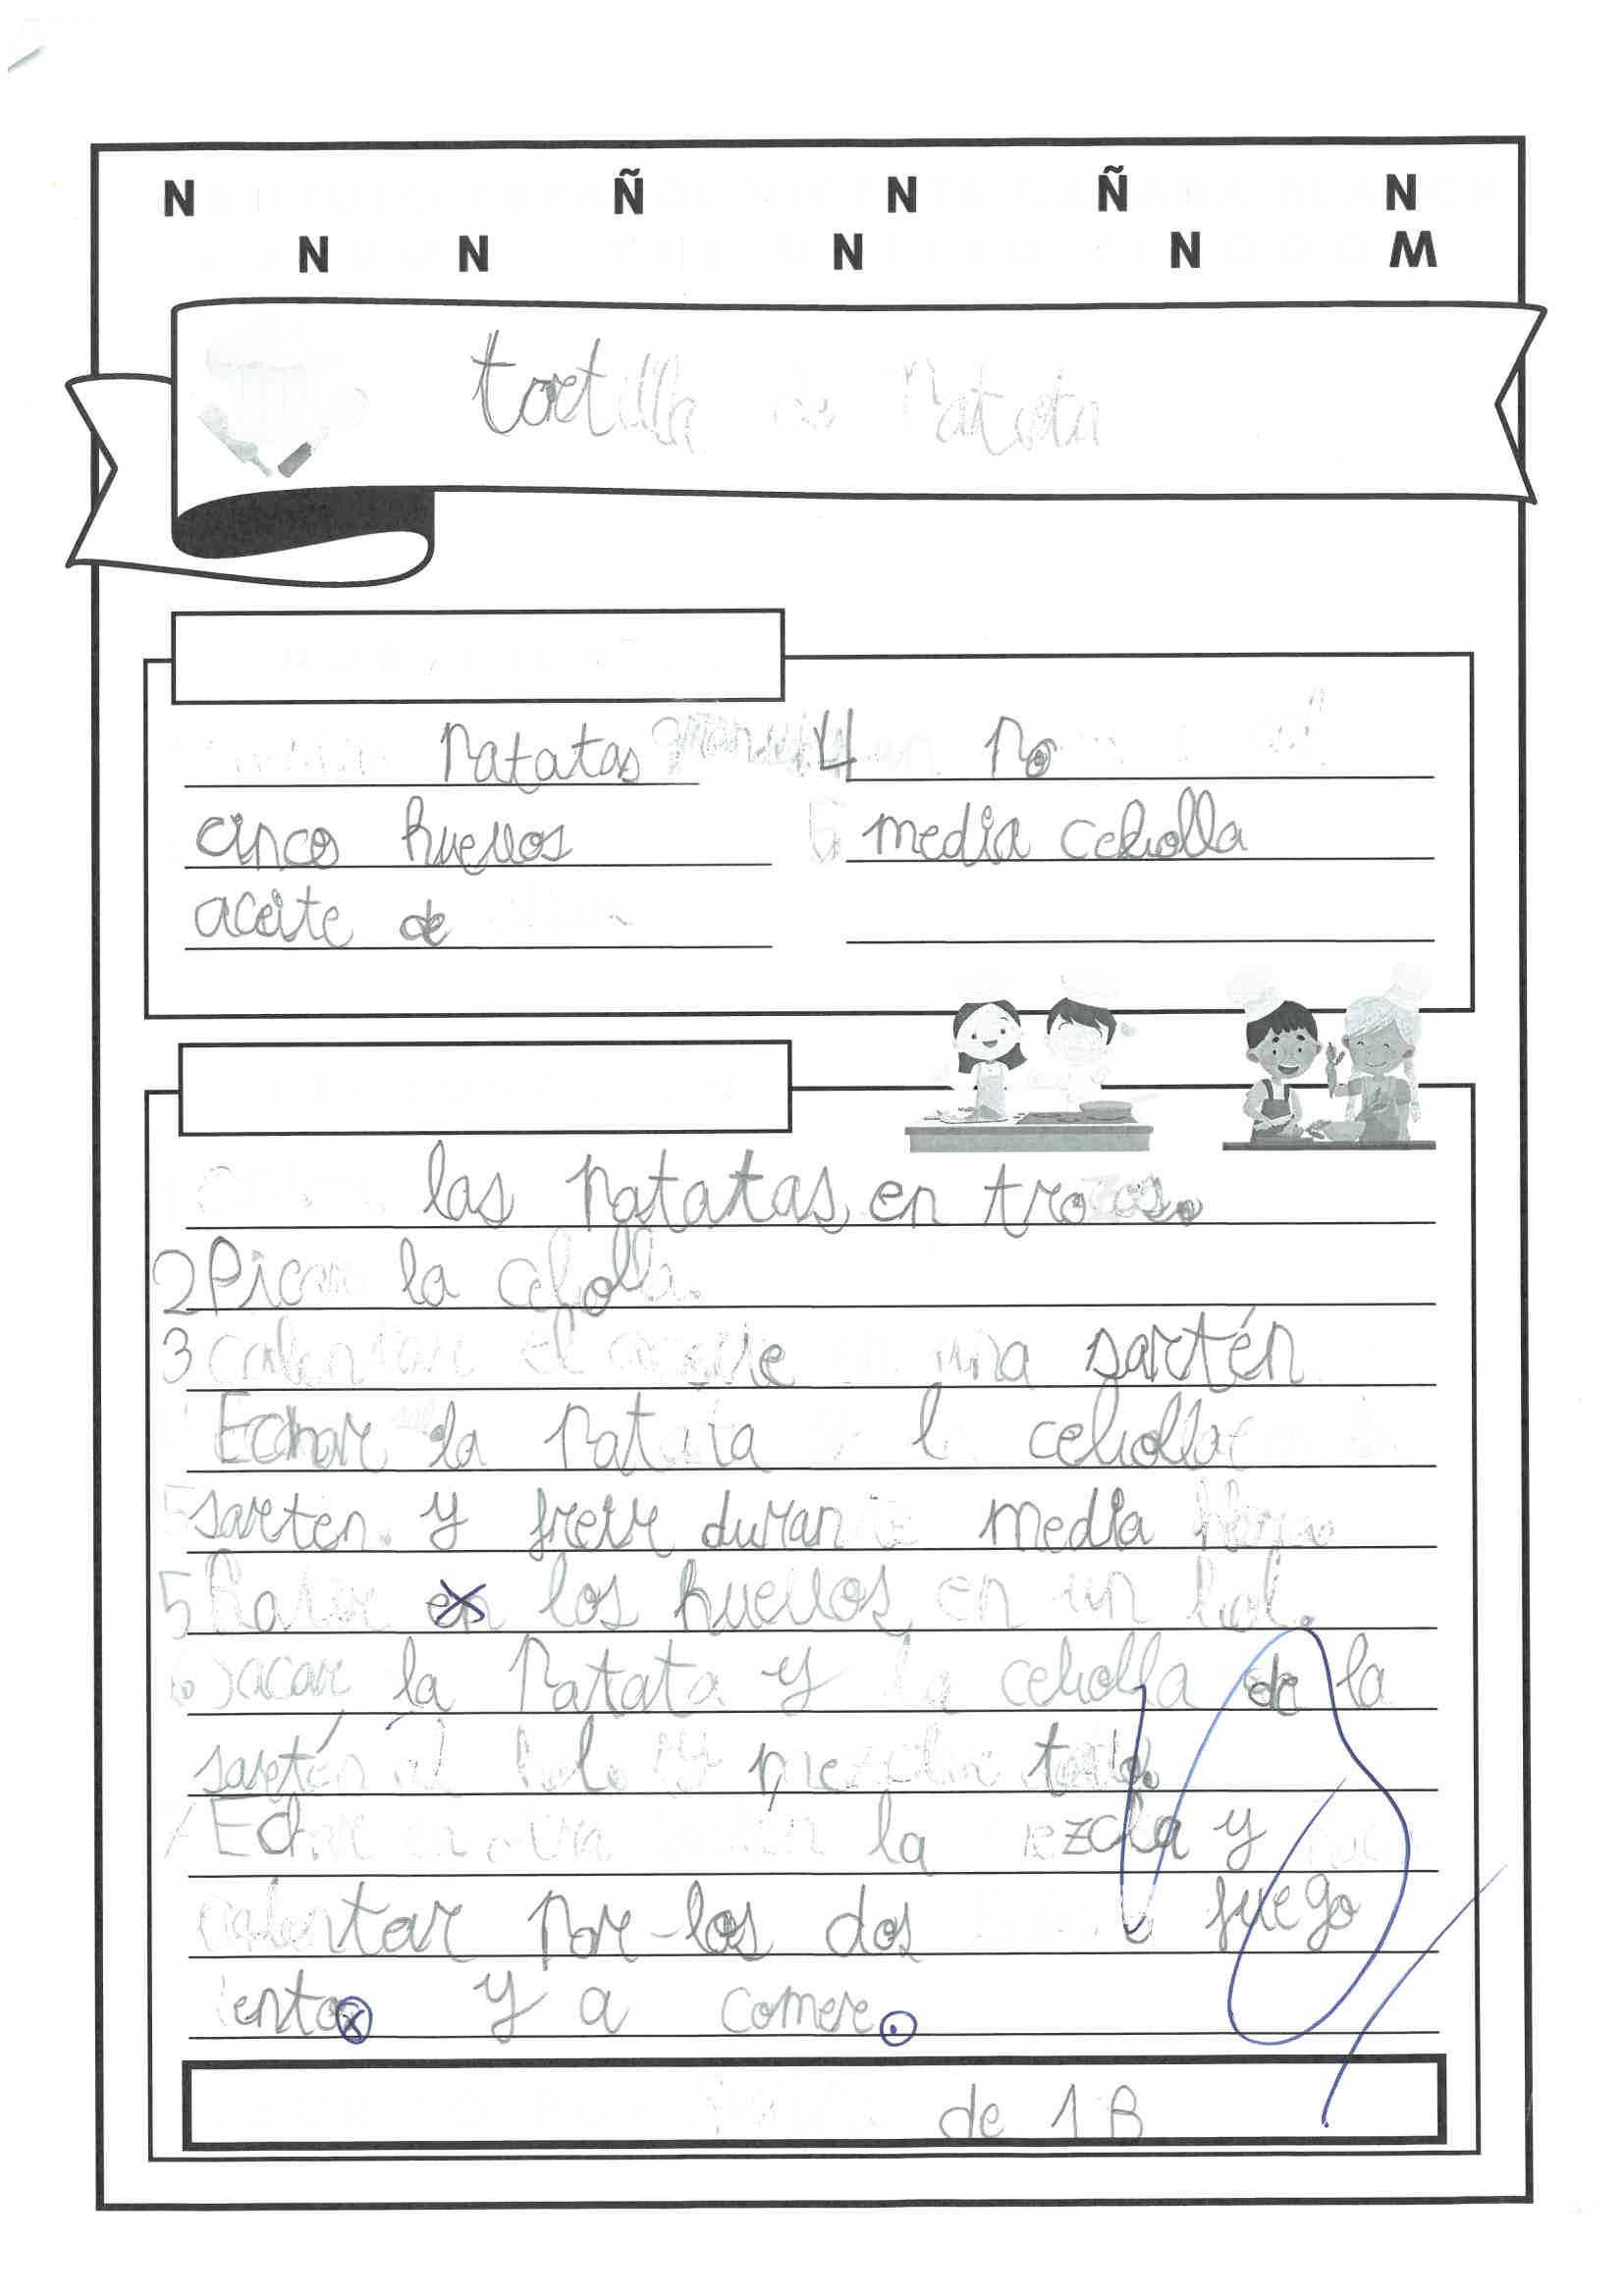 N Ñ N Ñ N
N N N N M
tortilla de Patata
Patatas grandes 4 un po
cinco huevos
media cebolla
aceite de
las Patatas en trozos.
2 Picar la cebolla.
3 calentar el aceite en una sartén
Echar la Patata y l cebolla
sarten. y freir durante media hora
5 Batir los huevos en un bol.
6 sacar la Patata y la cebolla de la
sartén al bol y mezclar todo.
7 Echar en otra sartén la mezcla y
calentar Por los dos fuego
lento y a comer.
de 1B